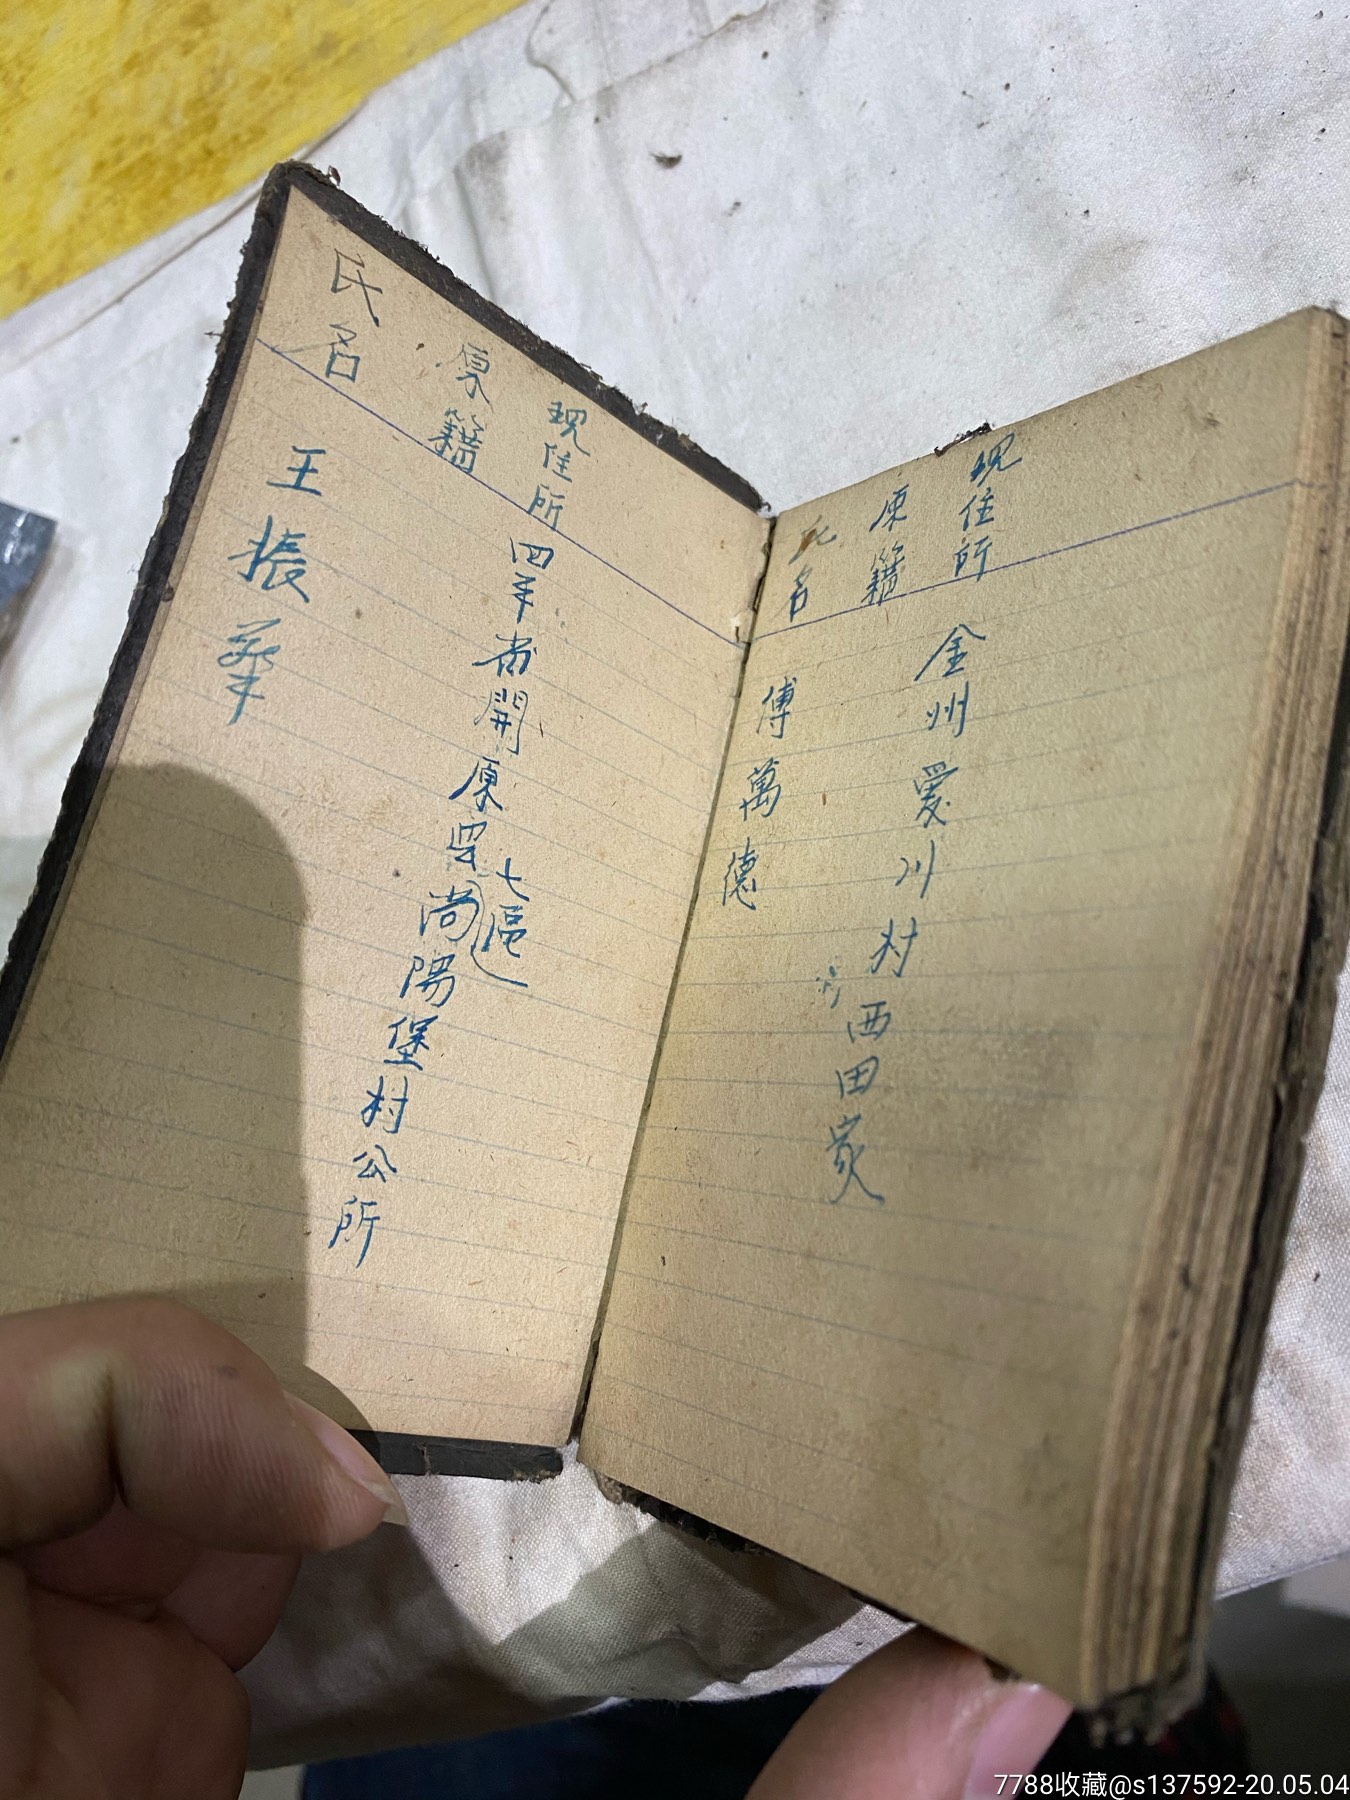 现住所 金州爱川村西田家
原籍
氏名 傅萬德
现住所 四平省開原县七區尚陽堡村公所
原籍
氏名 王振華
7788收藏@s137592-20.05.04